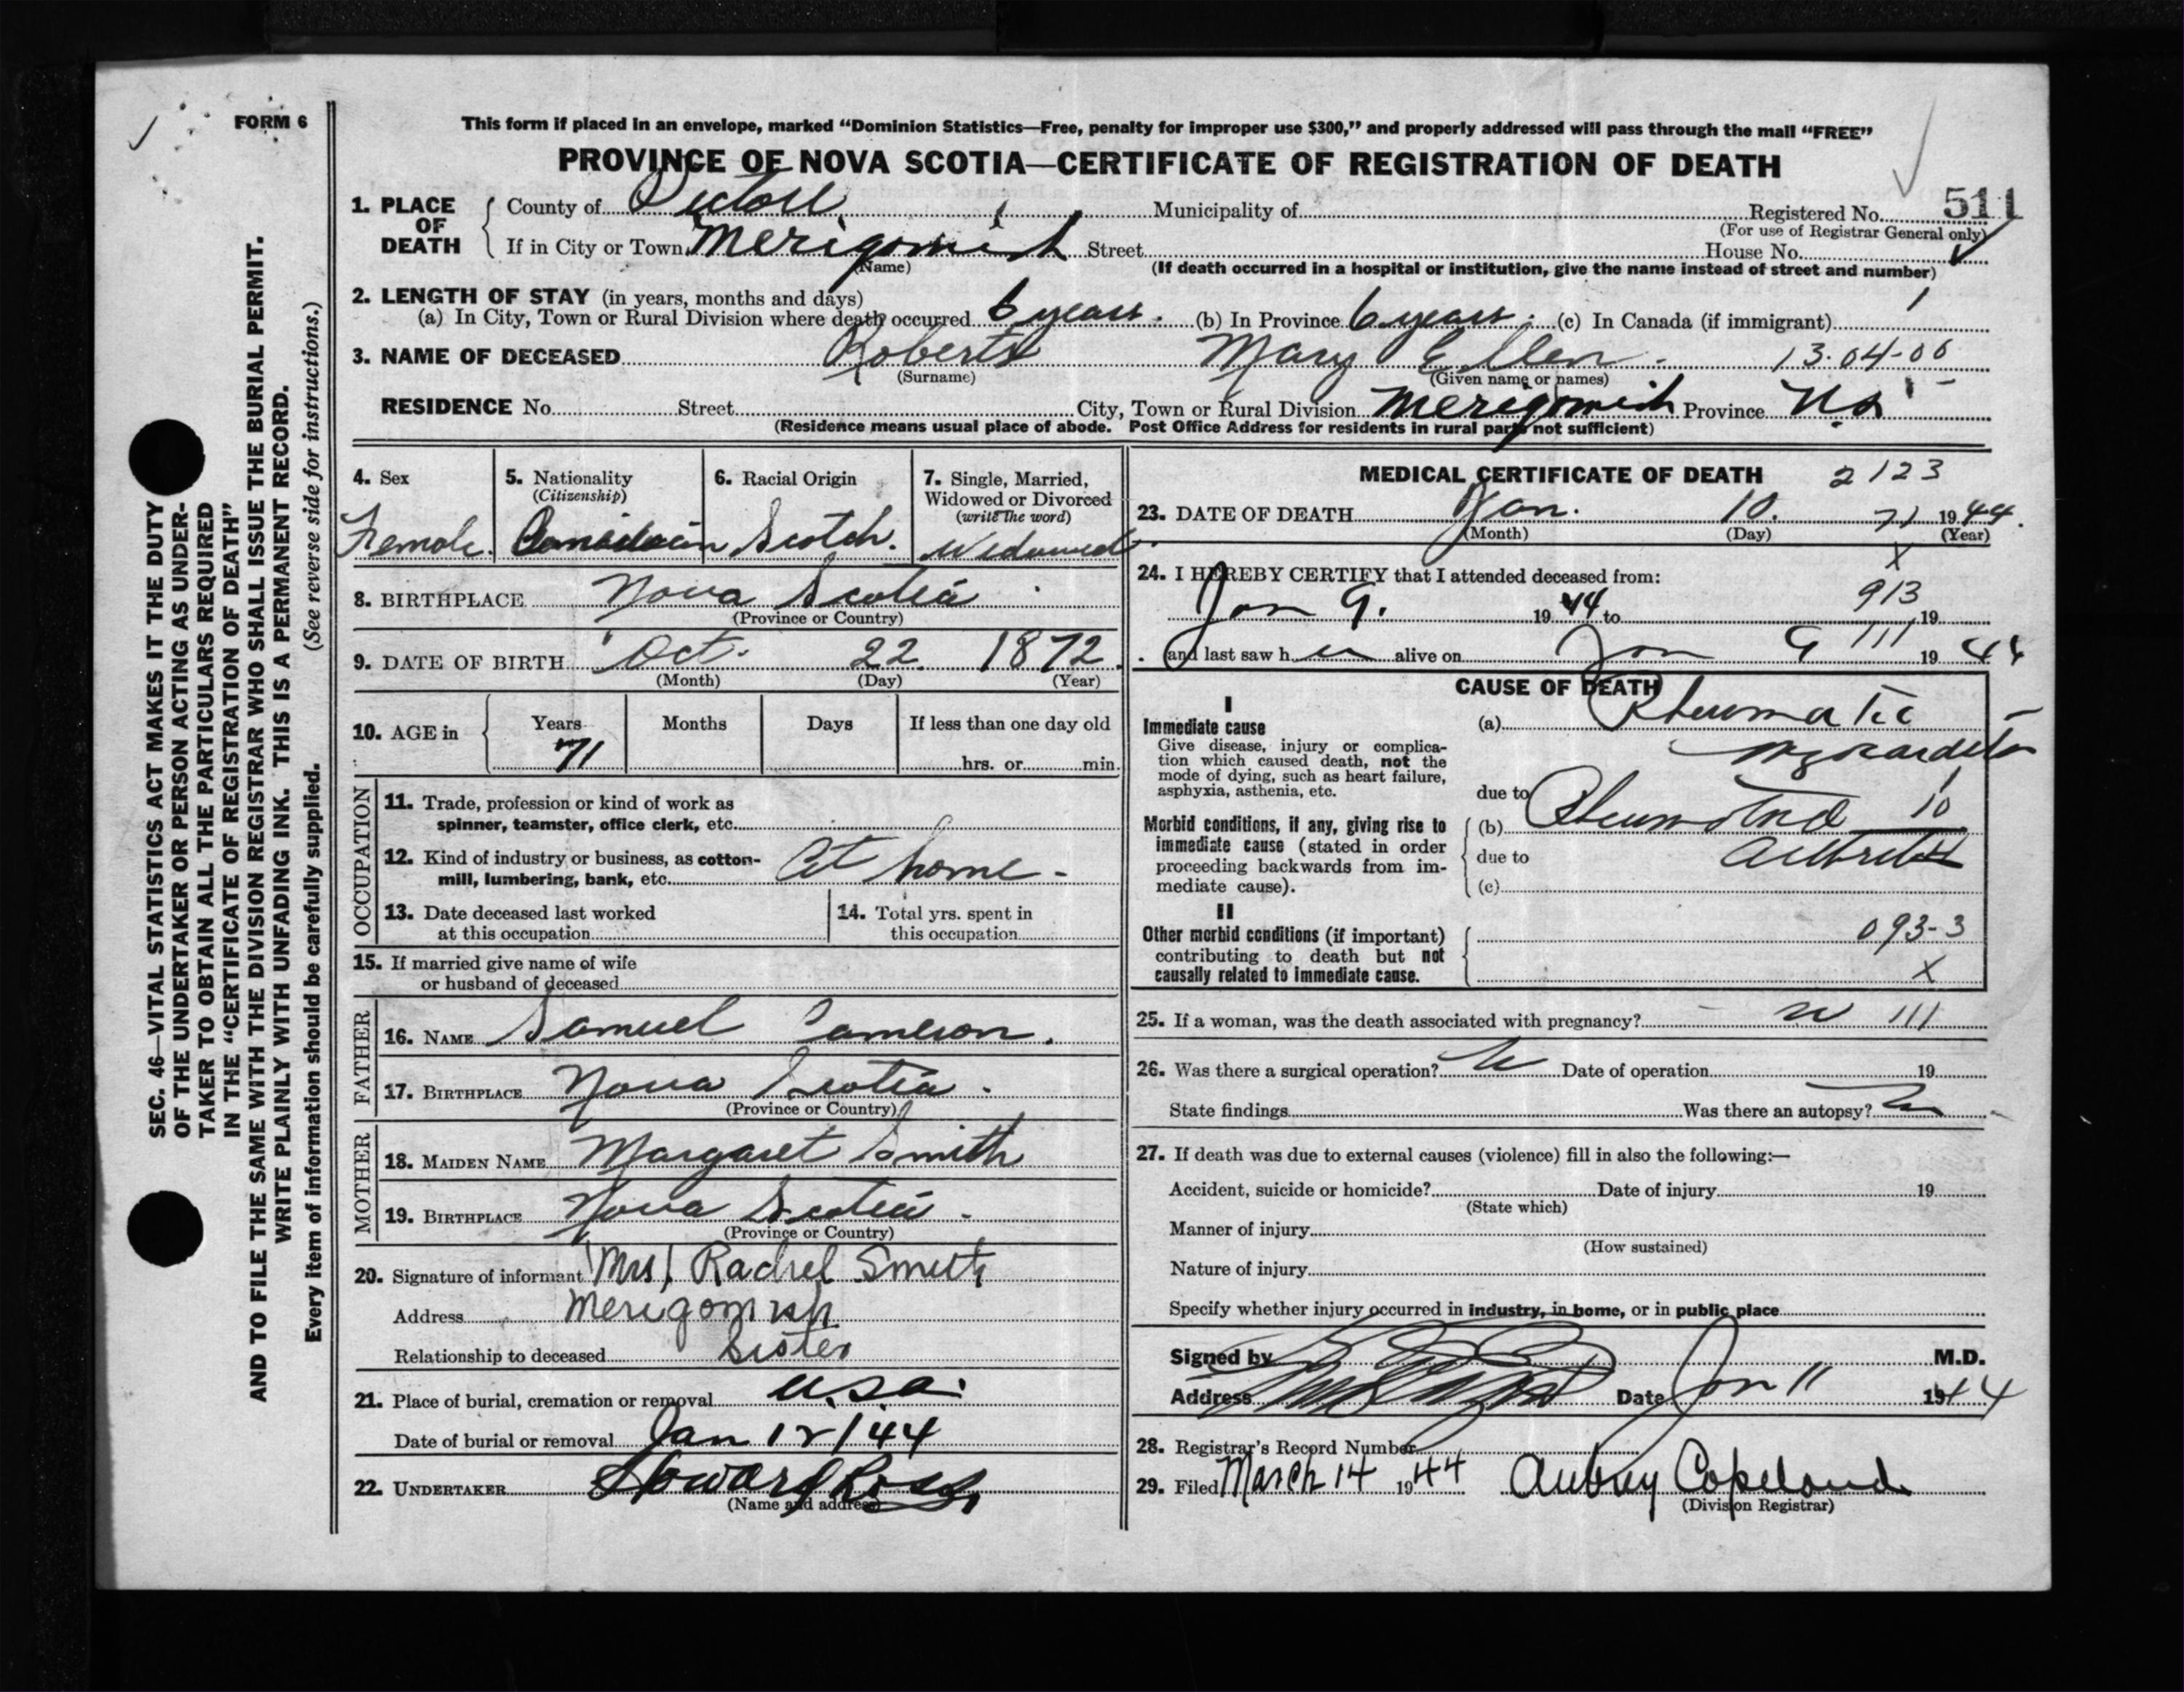 FORM 6
This form if placed in an envelope, marked “Dominion Statistics—Free, penalty for improper use $300,” and properly addressed will pass through the mail “FREE”
PROVINCE OF NOVA SCOTIA—CERTIFICATE OF REGISTRATION OF DEATH
1. PLACE OF DEATH
County of Pictou Municipality of Registered No. 511
(For use of Registrar General only)
If in City or Town Merigomish Street House No.
(Name) (If death occurred in a hospital or institution, give the name instead of street and number)
2. LENGTH OF STAY (in years, months and days)
(a) In City, Town or Rural Division where death occurred 6 years. (b) In Province 6 years. (c) In Canada (if immigrant)
3. NAME OF DECEASED Roberts Mary Ellen 13-04-06
(Surname) (Given name or names)
RESIDENCE No. Street City, Town or Rural Division Merigomish Province N.S.
(Residence means usual place of abode. Post Office Address for residents in rural parts not sufficient)
4. Sex
Female.
5. Nationality
(Citizenship)
Canadian
6. Racial Origin
Scotch.
7. Single, Married,
Widowed or Divorced
(write the word)
Widowed
8. BIRTHPLACE Nova Scotia
(Province or Country)
9. DATE OF BIRTH Oct. 22 1872.
(Month) (Day) (Year)
10. AGE in Years Months Days If less than one day old
71 hrs. or min.
OCCUPATION
11. Trade, profession or kind of work as
spinner, teamster, office clerk, etc.
12. Kind of industry or business, as cotton-
mill, lumbering, bank, etc. At home -
13. Date deceased last worked
at this occupation
14. Total yrs. spent in
this occupation
15. If married give name of wife
or husband of deceased
FATHER
16. NAME Samuel Cameron.
17. BIRTHPLACE Nova Scotia -
(Province or Country)
MOTHER
18. MAIDEN NAME Margaret Smith
19. BIRTHPLACE Nova Scotia -
(Province or Country)
20. Signature of informant (Mrs) Rachel Smith
Address Merigomish
Relationship to deceased Sister
21. Place of burial, cremation or removal U.S.A.
Date of burial or removal Jan 12/44
22. UNDERTAKER Howard Ross
(Name and address)
MEDICAL CERTIFICATE OF DEATH 2123
23. DATE OF DEATH Jan. 10. 71 1944.
(Month) (Day) (Year)
X
24. I HEREBY CERTIFY that I attended deceased from:
913
Jan 9. 1944 to 19
and last saw h er alive on Jan 9 111 1944
CAUSE OF DEATH
I
Immediate cause
Give disease, injury or complica-
tion which caused death, not the
mode of dying, such as heart failure,
asphyxia, asthenia, etc.
(a) Rheumatic
myocarditis
due to
Morbid conditions, if any, giving rise to
immediate cause (stated in order
proceeding backwards from im-
mediate cause).
(b) Rheumatoid 10
due to Arthritis
(c)
II
Other morbid conditions (if important)
contributing to death but not
causally related to immediate cause.
093-3
X
25. If a woman, was the death associated with pregnancy? 111
26. Was there a surgical operation? Date of operation 19
State findings Was there an autopsy?
27. If death was due to external causes (violence) fill in also the following:—
Accident, suicide or homicide? Date of injury 19
(State which)
Manner of injury
(How sustained)
Nature of injury
Specify whether injury occurred in industry, in home, or in public place
Signed by M.D.
Address Date Jan 11 1944
28. Registrar's Record Number
29. Filed March 14 1944 Aubrey Copeland
(Division Registrar)
SEC. 46—VITAL STATISTICS ACT MAKES IT THE DUTY
OF THE UNDERTAKER OR PERSON ACTING AS UNDER-
TAKER TO OBTAIN ALL THE PARTICULARS REQUIRED
IN THE “CERTIFICATE OF REGISTRATION OF DEATH”
AND TO FILE THE SAME WITH THE DIVISION REGISTRAR WHO SHALL ISSUE THE BURIAL PERMIT.
WRITE PLAINLY WITH UNFADING INK. THIS IS A PERMANENT RECORD.
Every item of information should be carefully supplied. (See reverse side for instructions.)